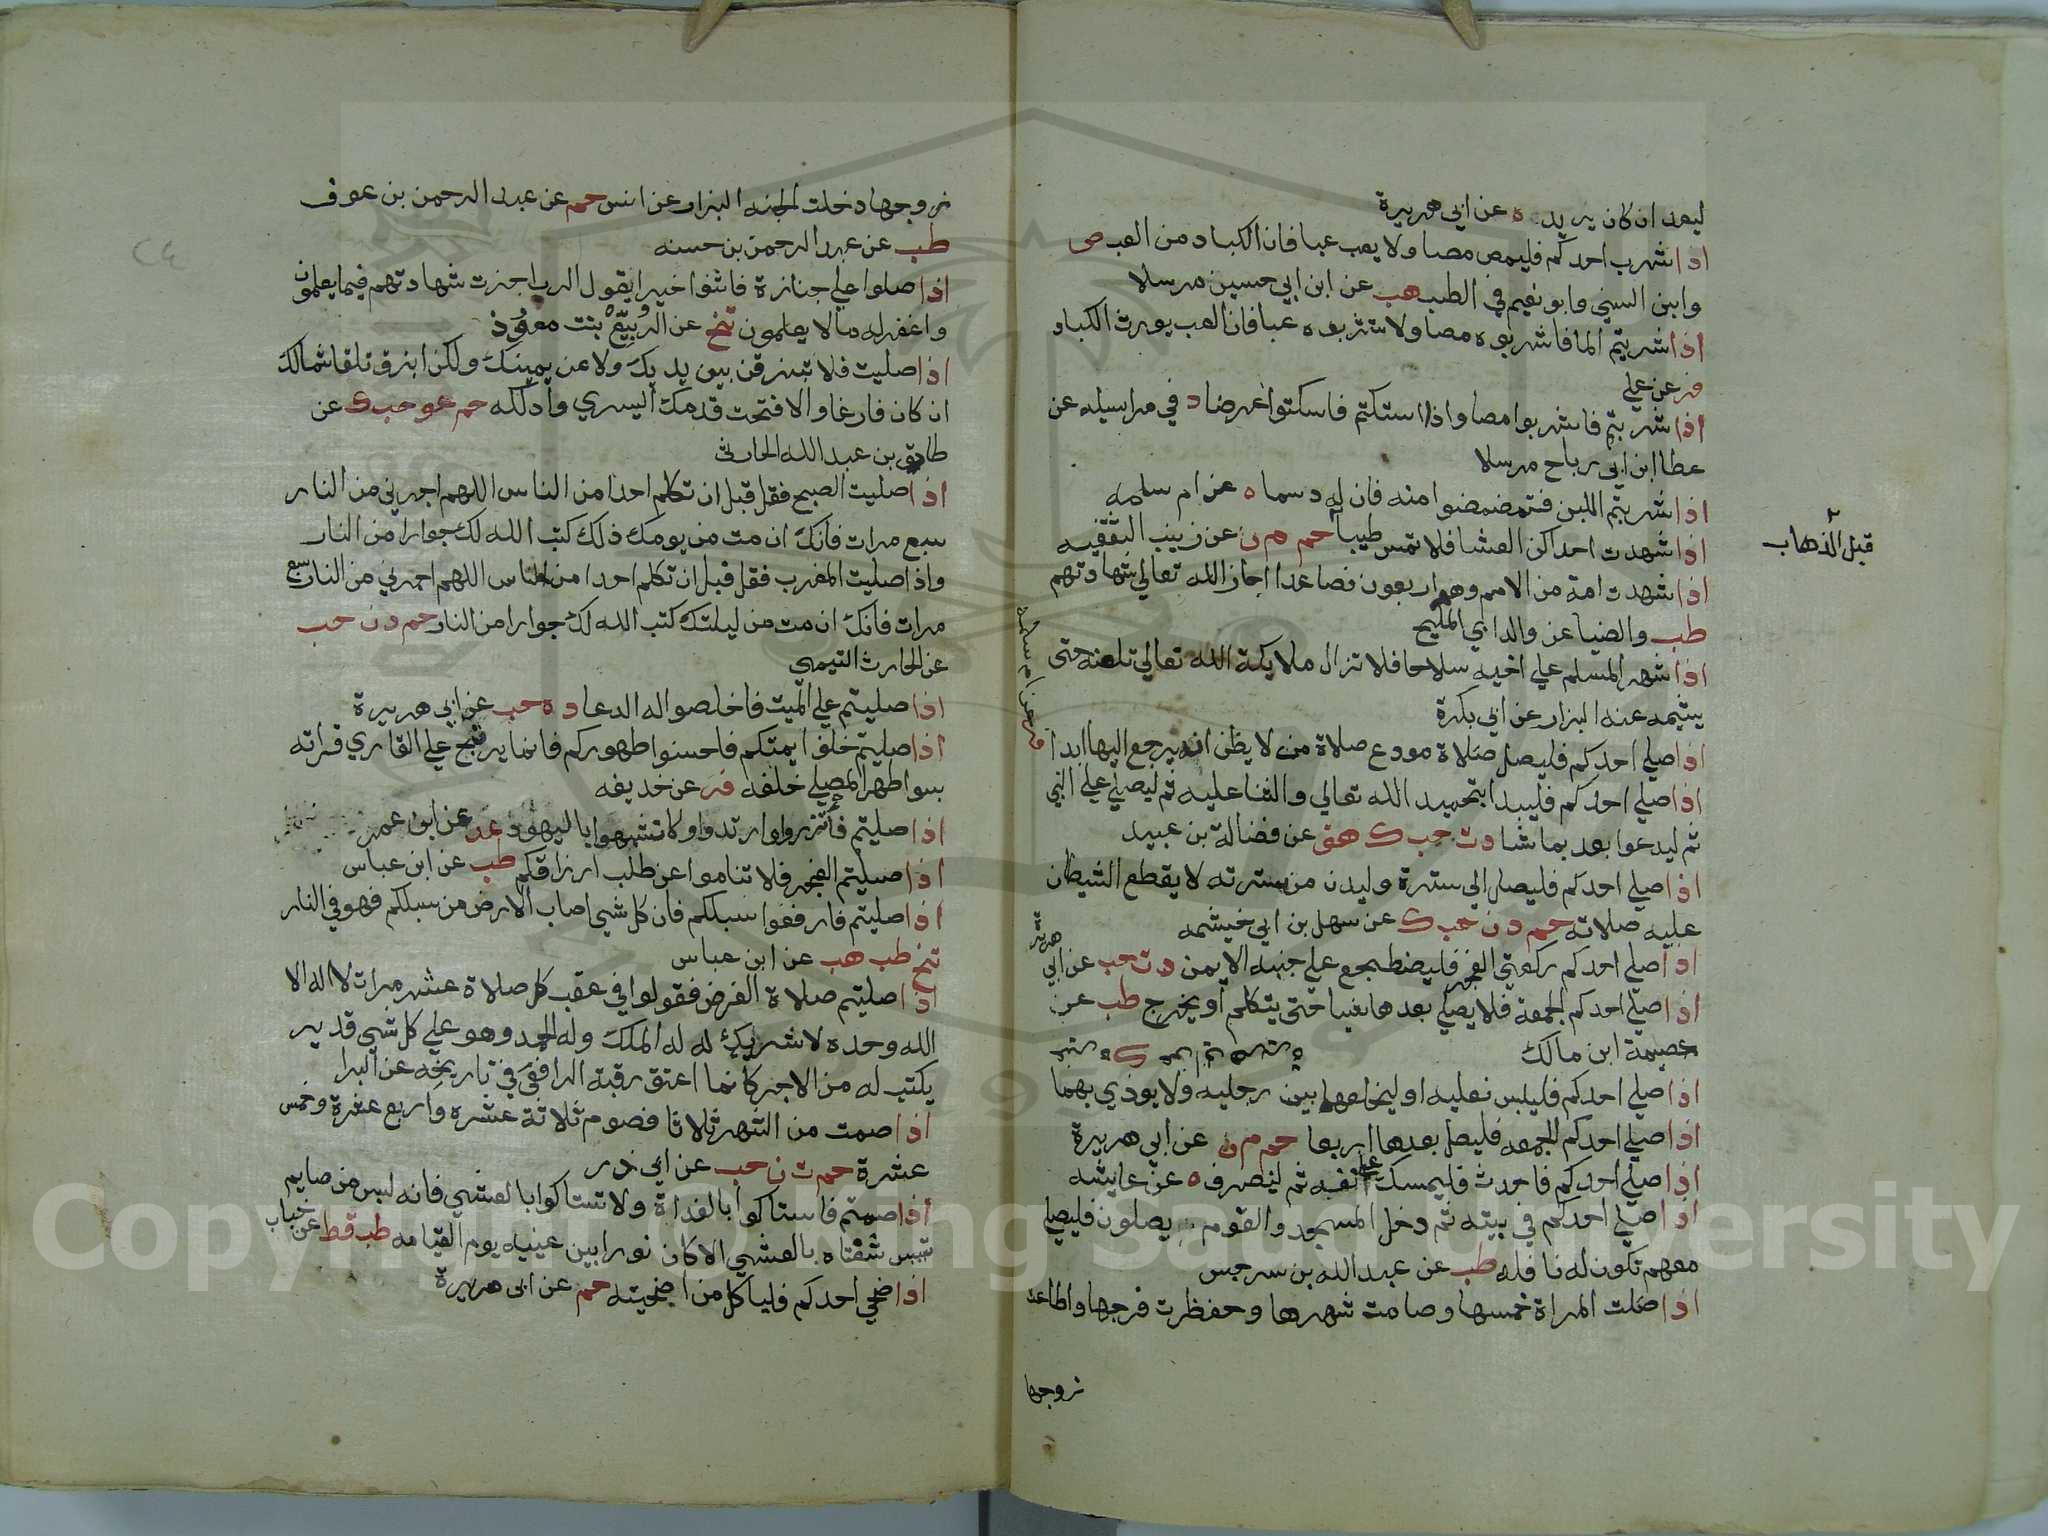 ليعد ان كان يريد ه عن ابي هريرة
اذا شرب احدكم فليمص مصا ولا يعب عبا فان الكباد من العب ص
وابن السني وابو نعيم في الطب هب عن ابن ابي حسين مرسلا
اذا شربتم الما فاشربوه مصا ولا تشربوه عبا فان العب يورث الكباد
فر عن علي
اذا شربتم فاشربوا مصا واذا استكتم فاستكوا عرضا د في مراسيله عن
عطا ابن ابي رباح مرسلا
اذا شربتم اللبن فتمضمضوا منه فان له دسما ه عن ام سلمه
اذا شهدت احداكن العشا فلا تمس طيبا حم م ن عن زينب الثقفيه
قبل الذهاب
اذا شهدت امة من الامم وهم اربعون فصاعدا اجاز الله تعالي شهادتهم
طب والضيا عن والد ابي المليح
اذا شهر المسلم علي اخيه سلاحا فلا تزال ملايكة الله تعالي تلعنه حتي
يشيمه عنه البزار عن ابي بكرة
اذا صلي احدكم فليصل صلاة مودع صلاة من لا يظن انه يرجع اليها ابدا
فر عن ام سلمه
اذا صلي احدكم فليبدا بتحميد الله تعالي والثنا عليه ثم ليصلي علي النبي
ثم ليدعوا بعد بما شا د ت حب ك هق عن فضالة بن عبيد
اذا صلي احدكم فليصل الي سترة وليدن من سترته لا يقطع الشيطان
عليه صلاته حم د ن حب ك عن سهل بن ابي خيثمه
اذا صلي احدكم ركعتي الفجر فليضطجع علي جنبه الايمن د ت حب عن ابي هريرة
اذا صلي احدكم الجمعة فلا يصلي بعدها شيا حتي يتكلم او يخرج طب عن
عصمة ابن مالك
اذا صلي احدكم فليلبس نعليه او ليخلعهما بين رجليه ولا يوذي بهما
اذا صلي احدكم الجمعه فليصل بعدها اربعا حم م ن عن ابي هريرة
اذا صلي احدكم فاحدث فليمسك علي انفه ثم لينصرف ه عن عايشه
اذا صلي احدكم في بيته ثم دخل المسجد والقوم يصلون فليصل
معهم تكون له نافله طب عن عبد الله بن سرجس
اذا صلت المراة خمسها وصامت شهرها وحفظت فرجها واطاعت
زوجها
زوجها دخلت الجنه البزار عن انس حم عن عبد الرحمن بن عوف
طب عن عبد الرحمن بن حسنه
اذا صلوا علي جنازة فاثنوا خيرا يقول الرب اجزت شهادتهم فيما يعلمون
واغفر له ما لا يعلمون تخ عن الربيع بنت معوذ
اذا صليت فلا تبزقن بين يديك ولا عن يمينك ولكن ابزق تلقا شمالك
ان كان فارغا والا فتحت قدمك اليسري وادلكه حم عو حب ك عن
طارق بن عبد الله الحارثي
اذا صليت الصبح فقل قبل ان تكلم احدا من الناس اللهم اجرني من النار
سبع مرات فانك ان مت من يومك ذلك كتب الله لك جوارا من النار
واذا صليت المغرب فقل قبل ان تكلم احدا من الناس اللهم اجرني من النار سبع
مرات فانك ان مت من ليلتك كتب الله لك جوارا من النار حم د ن حب
عن الحارث التيمي
اذا صليتم علي الميت فاخلصوا له الدعا د ه حب عن ابي هريرة
اذا صليتم خلف ايمتكم فاحسنوا طهوركم فانما يرتج علي القاري قراته
بسوا طهر المصلي خلفه فر عن حذيفه
اذا صليتم فأتزروا وارتدوا ولا تشبهوا باليهود عد عن ابن عمر
اذا صليتم الفجر فلا تناموا عن طلب ارزاقكم طب عن ابن عباس
اذا صليتم فارفعوا سبلكم فان كل شي اصاب الارض من سبلكم فهو في النار
تخ طب هب عن ابن عباس
اذا صليتم صلاة الفرض فقولوا في عقب كل صلاة عشر مرات لا اله الا
الله وحده لا شريك له له الملك وله الحمد وهو علي كل شي قدير
يكتب له من الاجر كانما اعتق رقبة الرافعي في تاريخه عن البرا
اذا صمت من الشهر ثلاثا فصوم ثلاثة عشره واربع عشرة وخمس
عشرة حم ت ن حب عن ابي ذر
اذا صمتم فاستاكوا بالغداة ولا تستاكوا بالعشي فانه ليس من صايم
تيبس شفتاه بالعشي الا كان نورا بين عينيه يوم القيامه طب قط عن خباب
اذا ضحي احدكم فلياكل من اضحيته حم عن ابي هريرة
Copyright © King Saud University